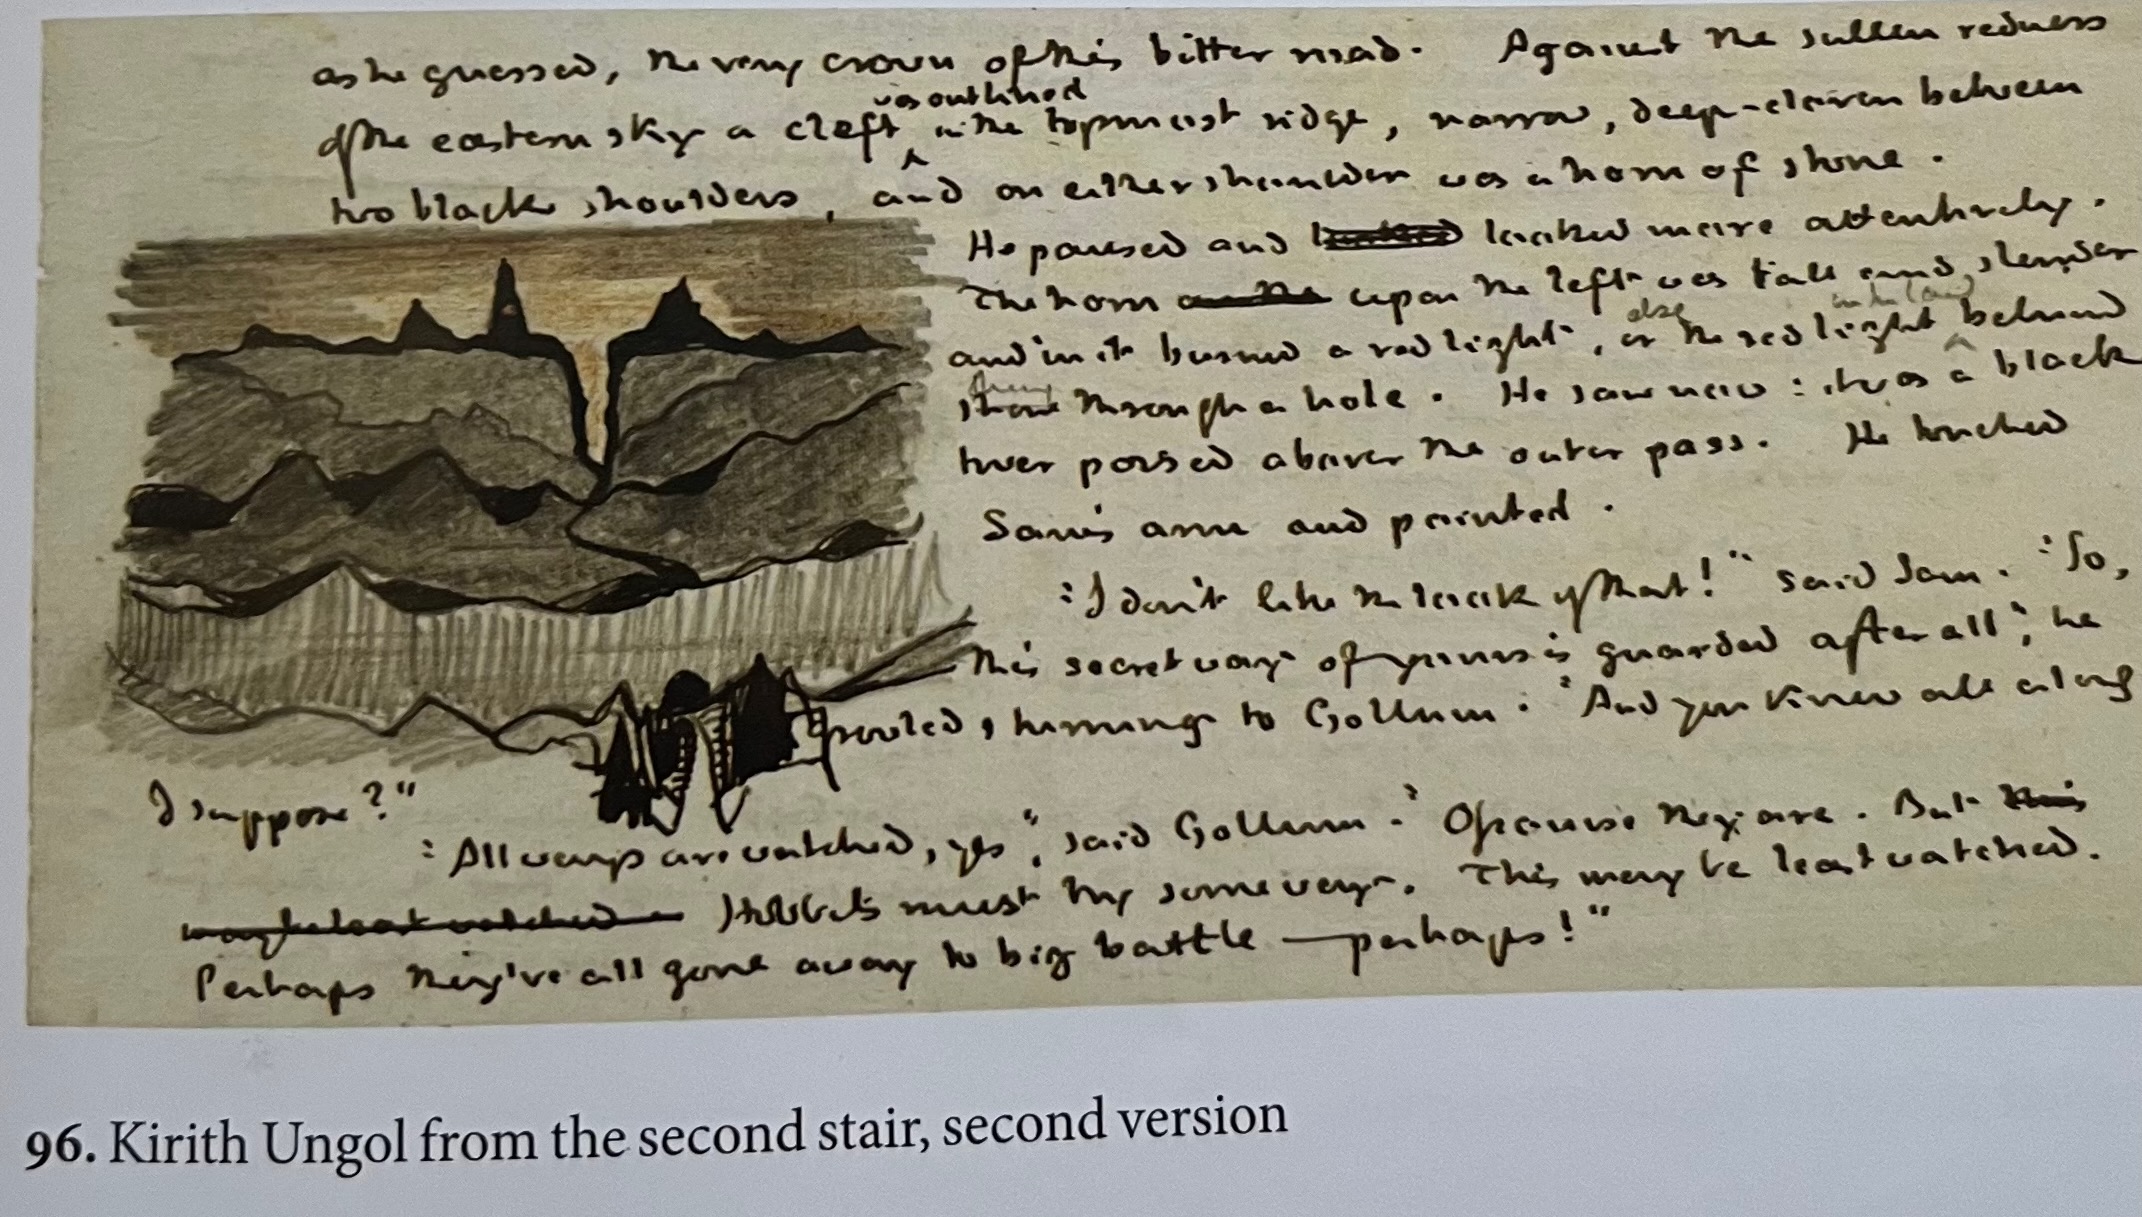 as he guessed, the very crown of this bitter road. Against the sullen redness
of the eastern sky a cleft was outlined in the topmost ridge, narrow, deep-cloven between
two black shoulders, and on either shoulder was a horn of stone.
He paused and looked more attentively.
The horn upon the left was tall and slender
and in it burned a red light, or else the red light in the land behind
shone through a hole. He saw now: it was a black
tower poised above the outer pass. He touched
Sam's arm and pointed.
'I don't like the look of that!" said Sam. 'So,
this secret way of yours is guarded after all", he
growled, turning to Gollum. 'And you knew all along
I suppose?"
'All ways are watched, yes", said Gollum. 'Of course they are. But this
may be least watched Hobbits must try some way. This may be least watched.
Perhaps they've all gone away to big battle — perhaps!"
96. Kirith Ungol from the second stair, second version